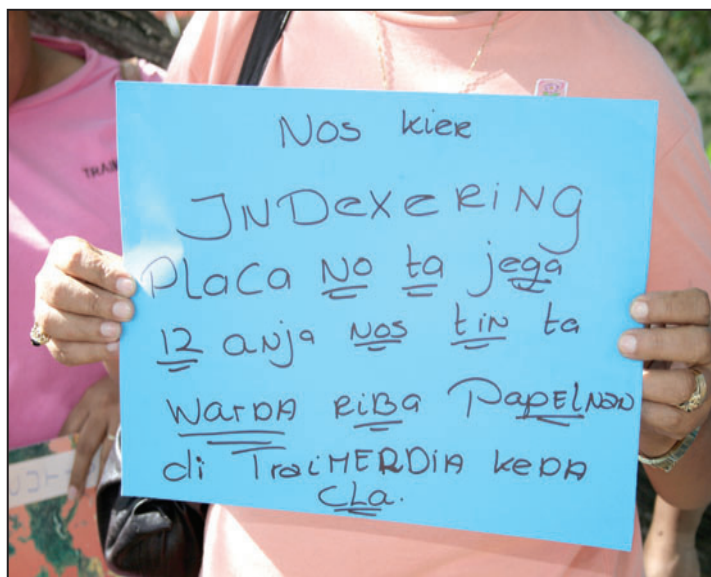 Nos kier
INDexeRiNg
PLaCa No ta jega
12 aNja Nos tiN ta
WarDA RiBa PapELNaN
di TraiMERDIA keDA
CLa.
TRAIM